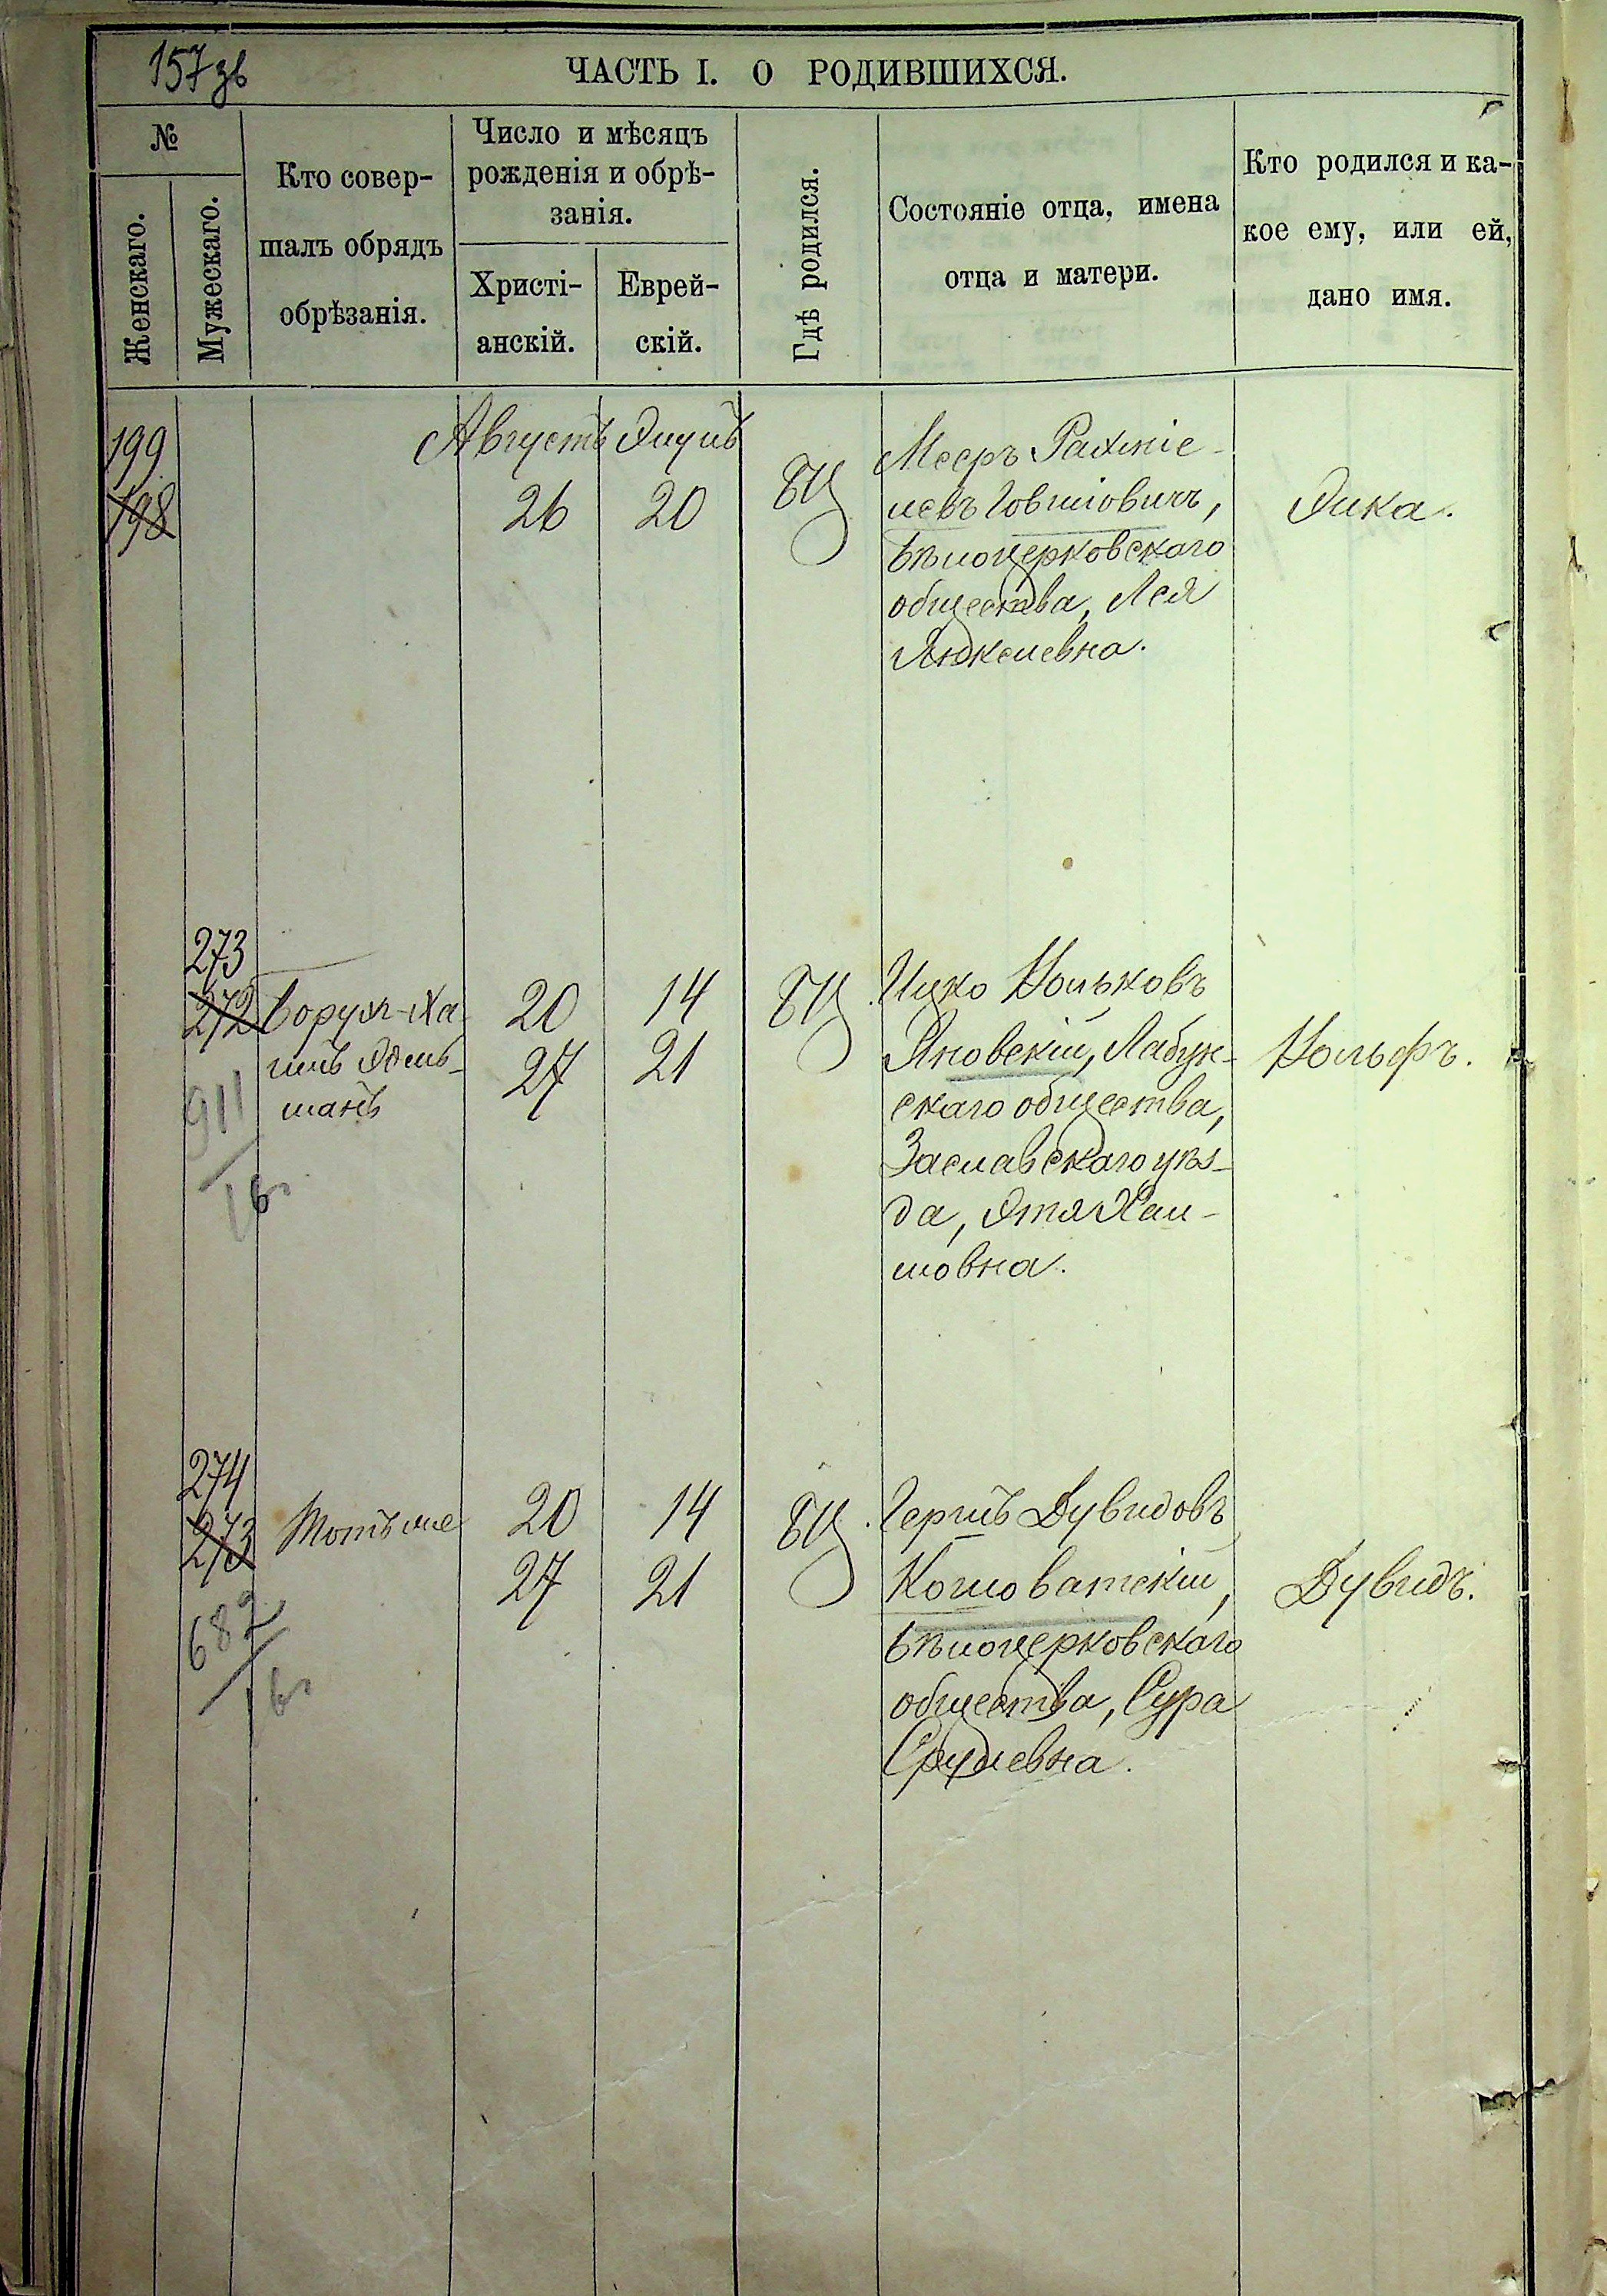 157 зв
ЧАСТЬ I. О РОДИВШИХСЯ.
№
Женскаго.
Мужескаго.
Кто совер-
шалъ обрядъ
обрѣзанія.
Число и мѣсяцъ
рожденія и обрѣ-
занія.
Христі-
анскій.
Еврей-
скій.
Гдѣ родился.
Состояніе отца, имена
отца и матери.
Кто родился и ка-
кое ему, или ей,
дано имя.
199
198
Августъ Элулъ
26 20
БЦ
Мееръ Рахміе-
левъ Говшіовичъ,
Бѣлоцерковскаго
общества, Лея
Янкелевна.
Элка.
273
272
911
16
Борухъ-Ха-
имъ Эдель-
манъ
20 14
27 21
БЦ
Ицко Вольковъ
Яновскій, Лабун-
скаго общества,
Заславскаго уѣз-
да, Этя Хаи-
мовна.
Вольфъ.
274
273
682
16
20 14
27 21
БЦ
Гершъ Дувидовъ
Коловатскій,
Бѣлоцерковскаго
общества, Сура
Срулевна.
Дувидъ.